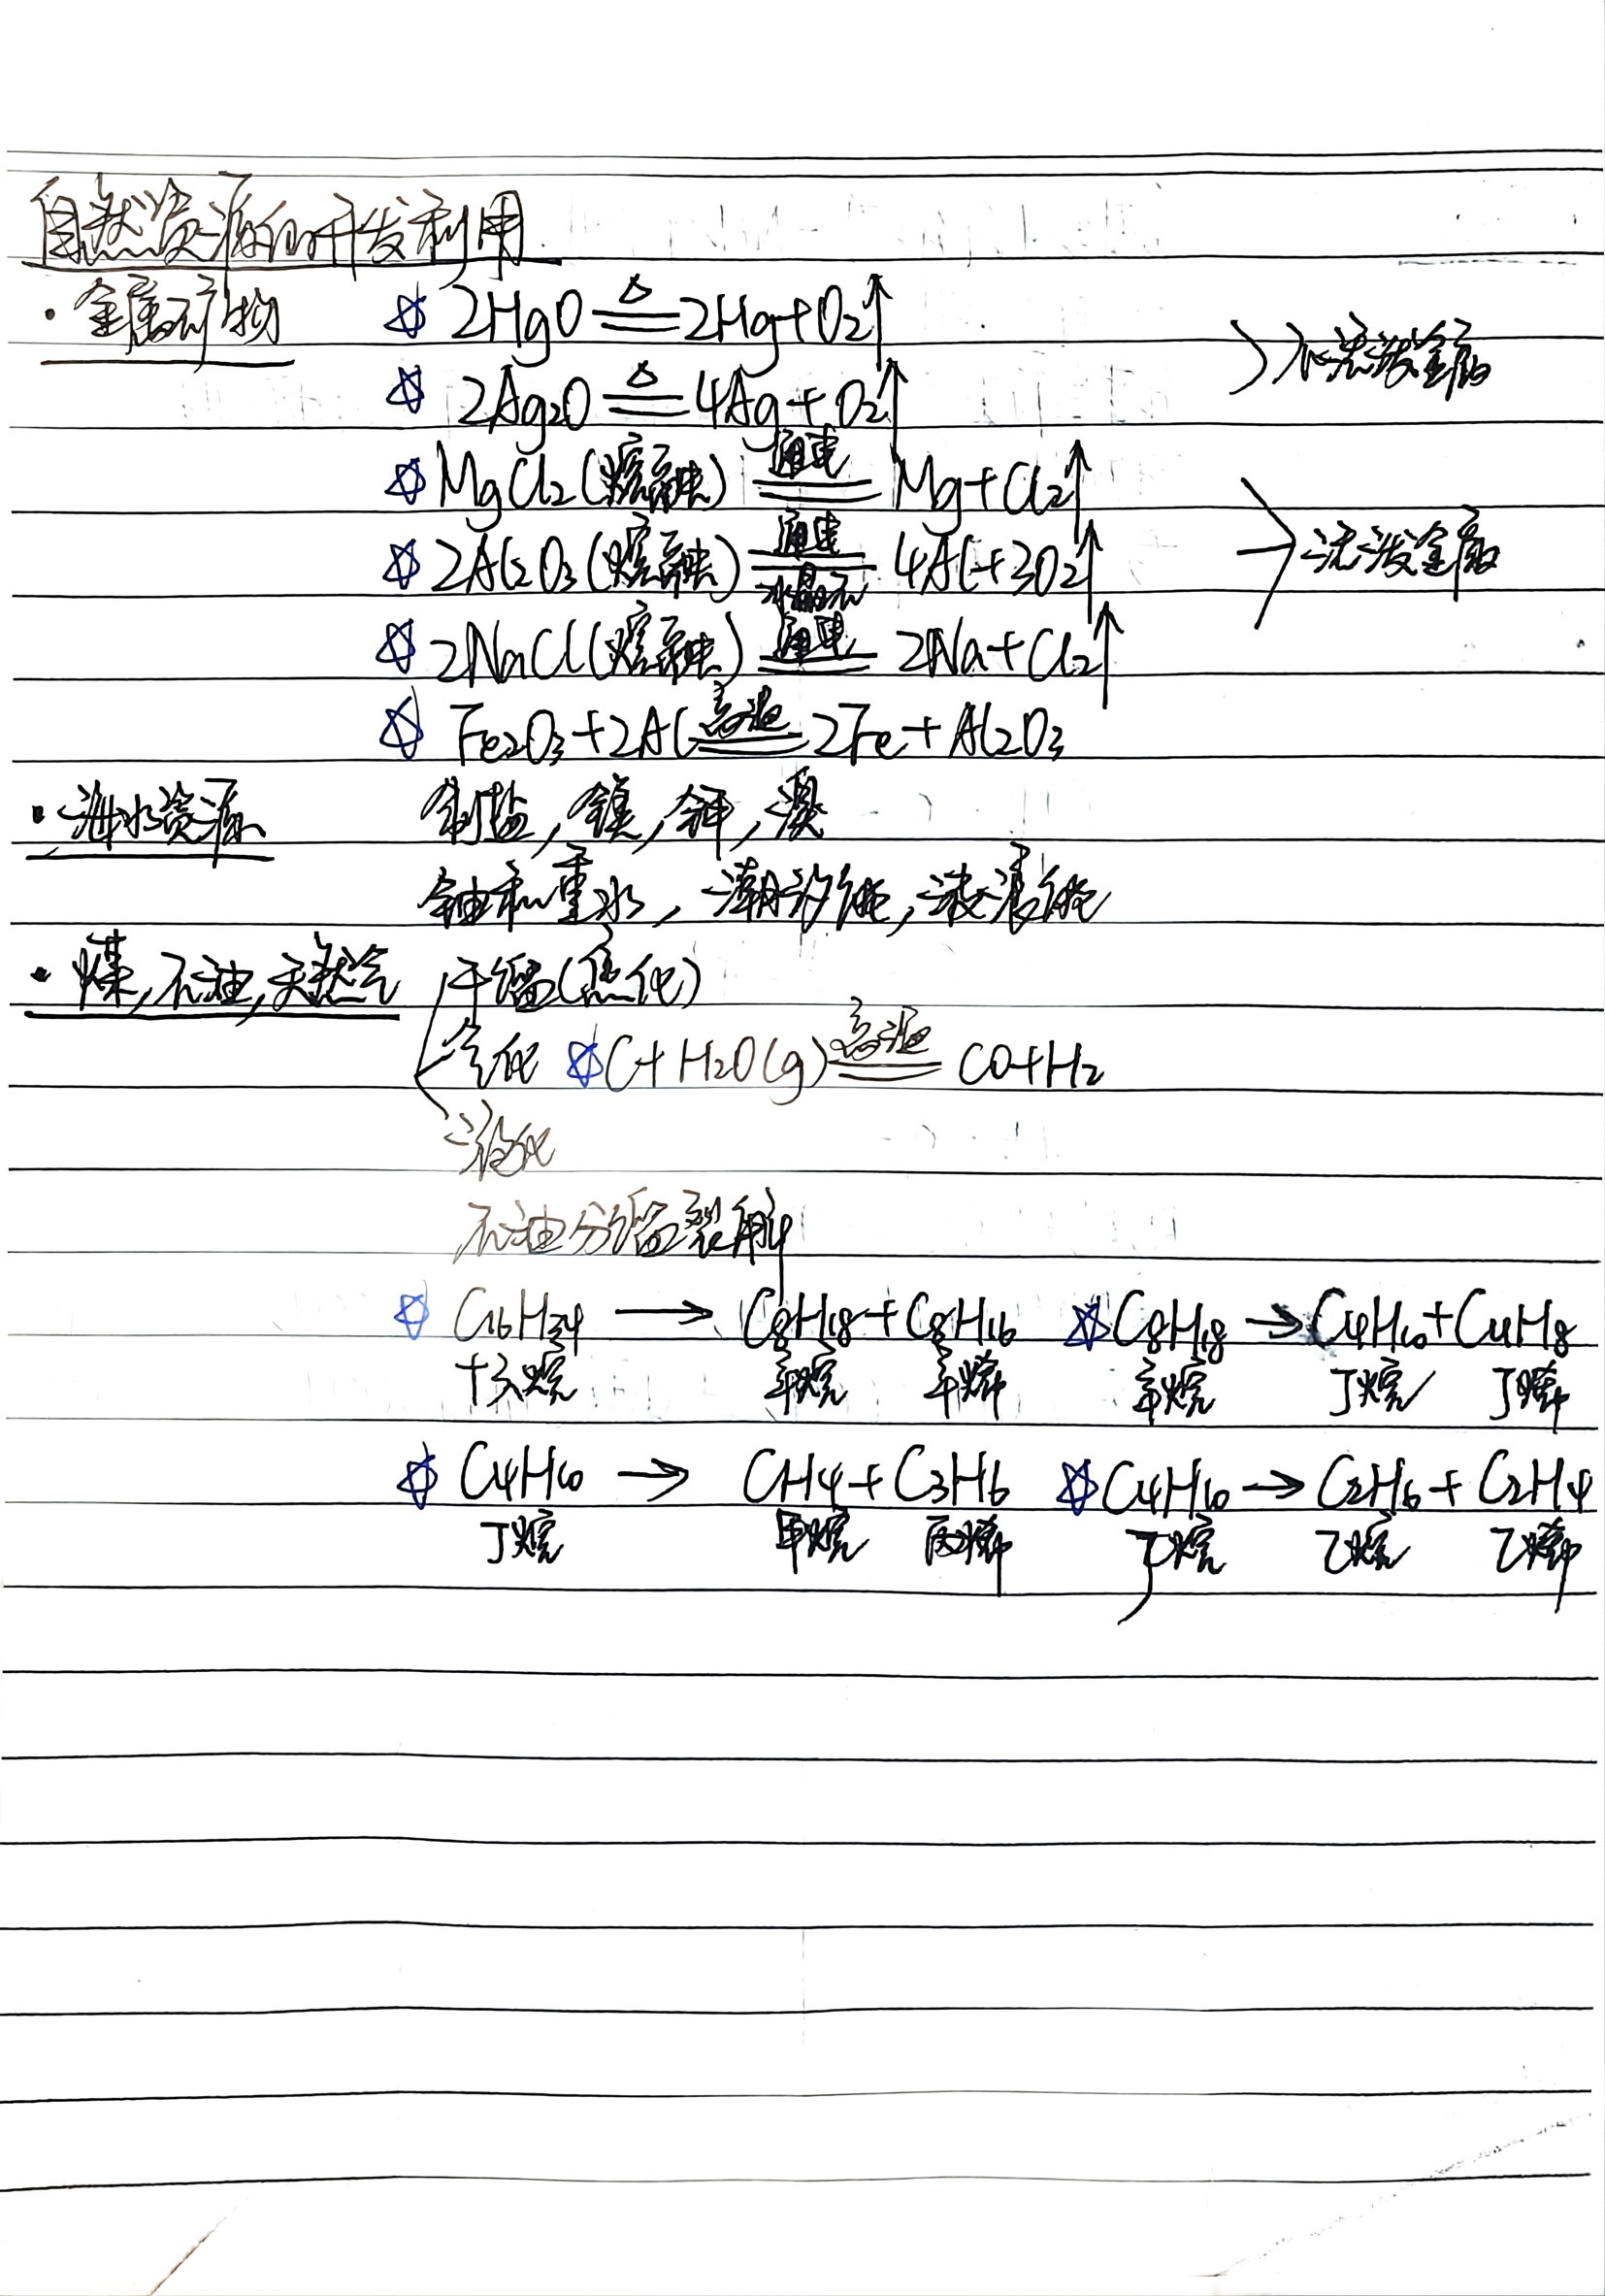 自然资源的开发利用
·金属矿物 ☆ 2HgO ≜ 2Hg+O₂↑
☆ 2Ag₂O ≜ 4Ag+O₂↑ > 不活泼金属
☆ MgCl₂(熔融) 通电═ Mg+Cl₂↑
☆ 2Al₂O₃(熔融) 通电═冰晶石 4Al+3O₂↑ > 活泼金属
☆ 2NaCl(熔融) 通电═ 2Na+Cl₂↑
☆ Fe₂O₃+2Al 高温═ 2Fe+Al₂O₃
·海水资源 制盐,镁,钾,溴
铀和重水,潮汐能,波浪能
·煤,石油,天然气 干馏(焦化)
气化 ☆ C+H₂O(g) 高温═ CO+H₂
液化
石油分馏裂解
☆ C₁₆H₃₄ → C₈H₁₈+C₈H₁₆ ☆ C₈H₁₈ → C₄H₁₀+C₄H₈
十六烷 辛烷 辛烯 辛烷 丁烷 丁烯
☆ C₄H₁₀ → CH₄+C₃H₆ ☆ C₄H₁₀ → C₂H₆+C₂H₄
丁烷 甲烷 丙烯 丁烷 乙烷 乙烯